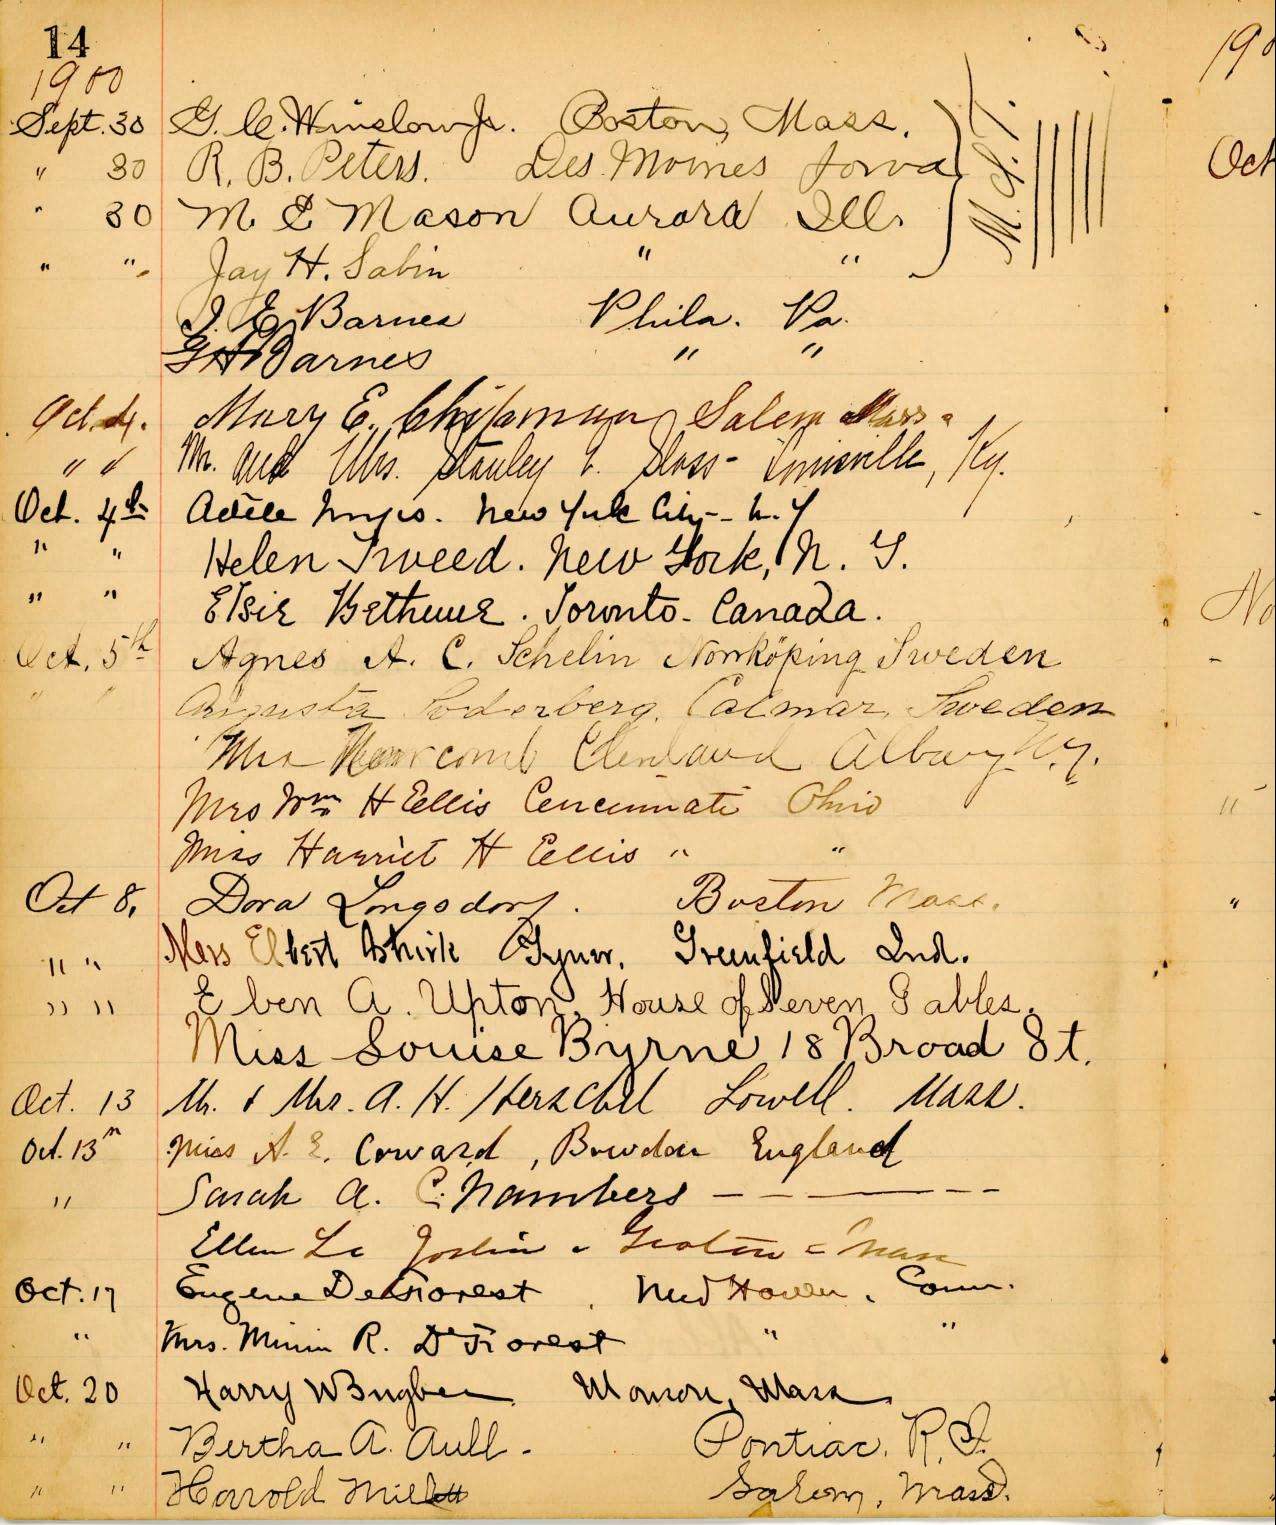 14
1900
Sept. 30 G. C. Winslow Jr. Boston, Mass.
" 30 R. B. Peters. Des Moines Iowa
" 30 M E Mason Aurora Ill.
" " Jay H. Sabin " "
M.I.T.
J. E. Barnes Phila. Pa.
G H Barnes " "
Oct. 4. Mary E. Chipman Salem Mass.
" " Mr. and Mrs. Stanley Sloss - Louisville, Ky.
Oct. 4th Adele New York City - N.Y
" " Helen Tweed. New York, N. Y.
" " Elsie Bethune. Toronto - Canada.
Oct. 5th Agnes A. C. Schelin Norrköping Sweden
" " Augusta Soderberg, Calmar, Sweden
Mrs Newcomb Cleveland Albany N.Y.
Mrs Wm H Ellis Cincinnati Ohio
Miss Harriet H Ellis " "
Oct 8, Dora Longsdorf. Boston Mass.
" " Mrs Elbert Greenfield Ind.
" " Eben A. Upton, House of Seven Gables.
Miss Louise Byrne 18 Broad St.
Oct. 13 Mr. & Mrs. A. H. Herschel Lowell. Mass.
Oct. 13 Miss A. E. Coward, Bowdon England
" Sarah A. Chambers - - - -
Ellen Joslin - Groton - Mass
Oct. 17 Eugene DeForest, New Haven, Conn.
" Mrs. Minnie R. DeForest " "
Oct. 20 Harry W Monson, Mass
" " Bertha A. Aull. Pontiac, R.I.
" " Harrold Millett Salem, Mass.
190
Oct
No
"
"